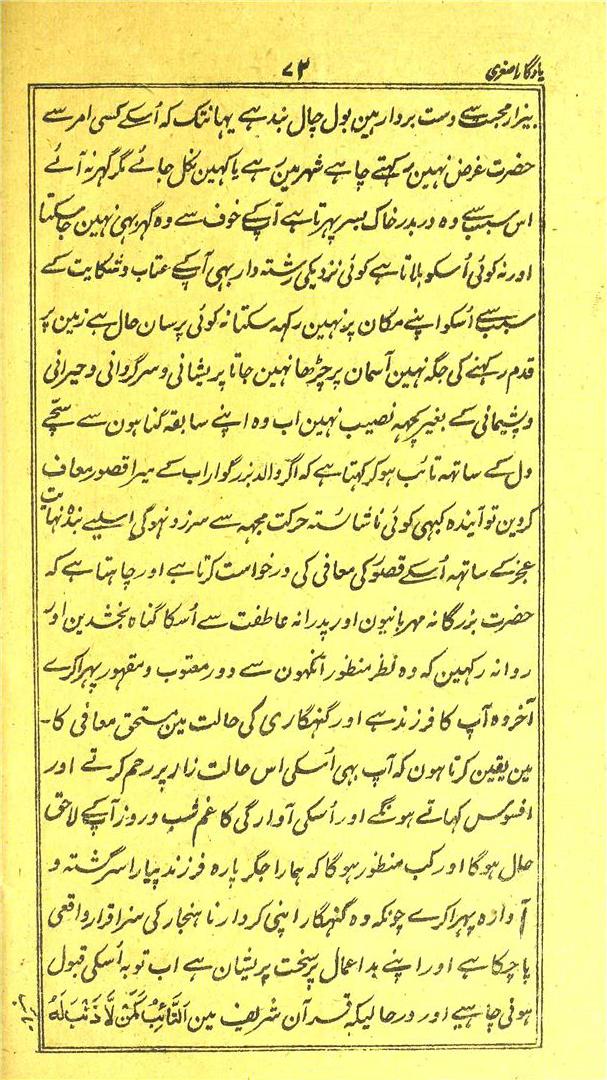 یادگار اصغری
۷۲
بیزار محبت سے دست بردار ہین بول چال بند ہے یہانتک کہ اُسکے کسی امر سے
حضرت غرض نہین رکہتے چاہے شہر مین رہے یا کہین نکل جائے مگر گہر نہ آئے
اس سبب سے وہ دربدر خاک بسر پہرتا ہے آپ کے خوف سے وہ گہر بہی نہین جا سکتا
اور نہ کوئی اُسکو بلاتا ہے کوئی نزدیکی رشتہ دار بہی آپ کے عتاب و شکایت کے
سبب سے اُسکو اپنے مکان پر نہین رکہہ سکتا نہ کوئی پرسان حال ہے زمین پر
قدم رکہنے کی جگہ نہین آسمان پر چڑھا نہین جاتا پریشانی و سرگردانی و حیرانی
و پشیمانی کے بغیر کچہہ نصیب نہین اب وہ اپنے سابقہ گناہون سے سچّے
دل کے ساتہہ تائب ہو کر کہتا ہے کہ اگر والد بزرگوار اب کے میرا قصور معاف
کردین تو آیندہ کبہی کوئی ناشائستہ حرکت مجہہ سے سرزد نہوگی اسلیے بندہ نہایت
عجز کے ساتہہ اُسکے قصور کی معافی کی درخواست کرتا ہے اور چاہتا ہے کہ
حضرت بزرگانہ مہربانیون اور پدرانہ عاطفت سے اُسکا گناہ بخشدین اور
روانہ رکہین کہ وہ نظر منظور آنکہون سے دور معتوب و مقہور پہرا کرے
آخر وہ آپ کا فرزند ہے اور گنہگاری کی حالت مین مستحق معافی کا۔
مین یقین کرتا ہون کہ آپ بہی اُسکی اس حالت زار پر رحم کرتے اور
افسوس کہاتے ہونگے اور اُسکی آوارگی کا غم شب و روز آپ کے لاحق
حال ہوگا اور کب منظور ہوگا کہ ہمارا جگر پارہ فرزند پیارا سرگشتہ و
آوارہ پہرا کرے چونکہ وہ گنہگار اپنی کردار ناہنجار کی سزا قرار واقعی
پا چکا ہے اور اپنے بد اعمال پر سخت پریشان ہے اب توبہ اُسکی قبول
ہونی چاہیے اور در حالیکہ قرآن شریف مین اَلتَّائِبُ کَمَنْ لَّا ذَنْبَ لَهُ